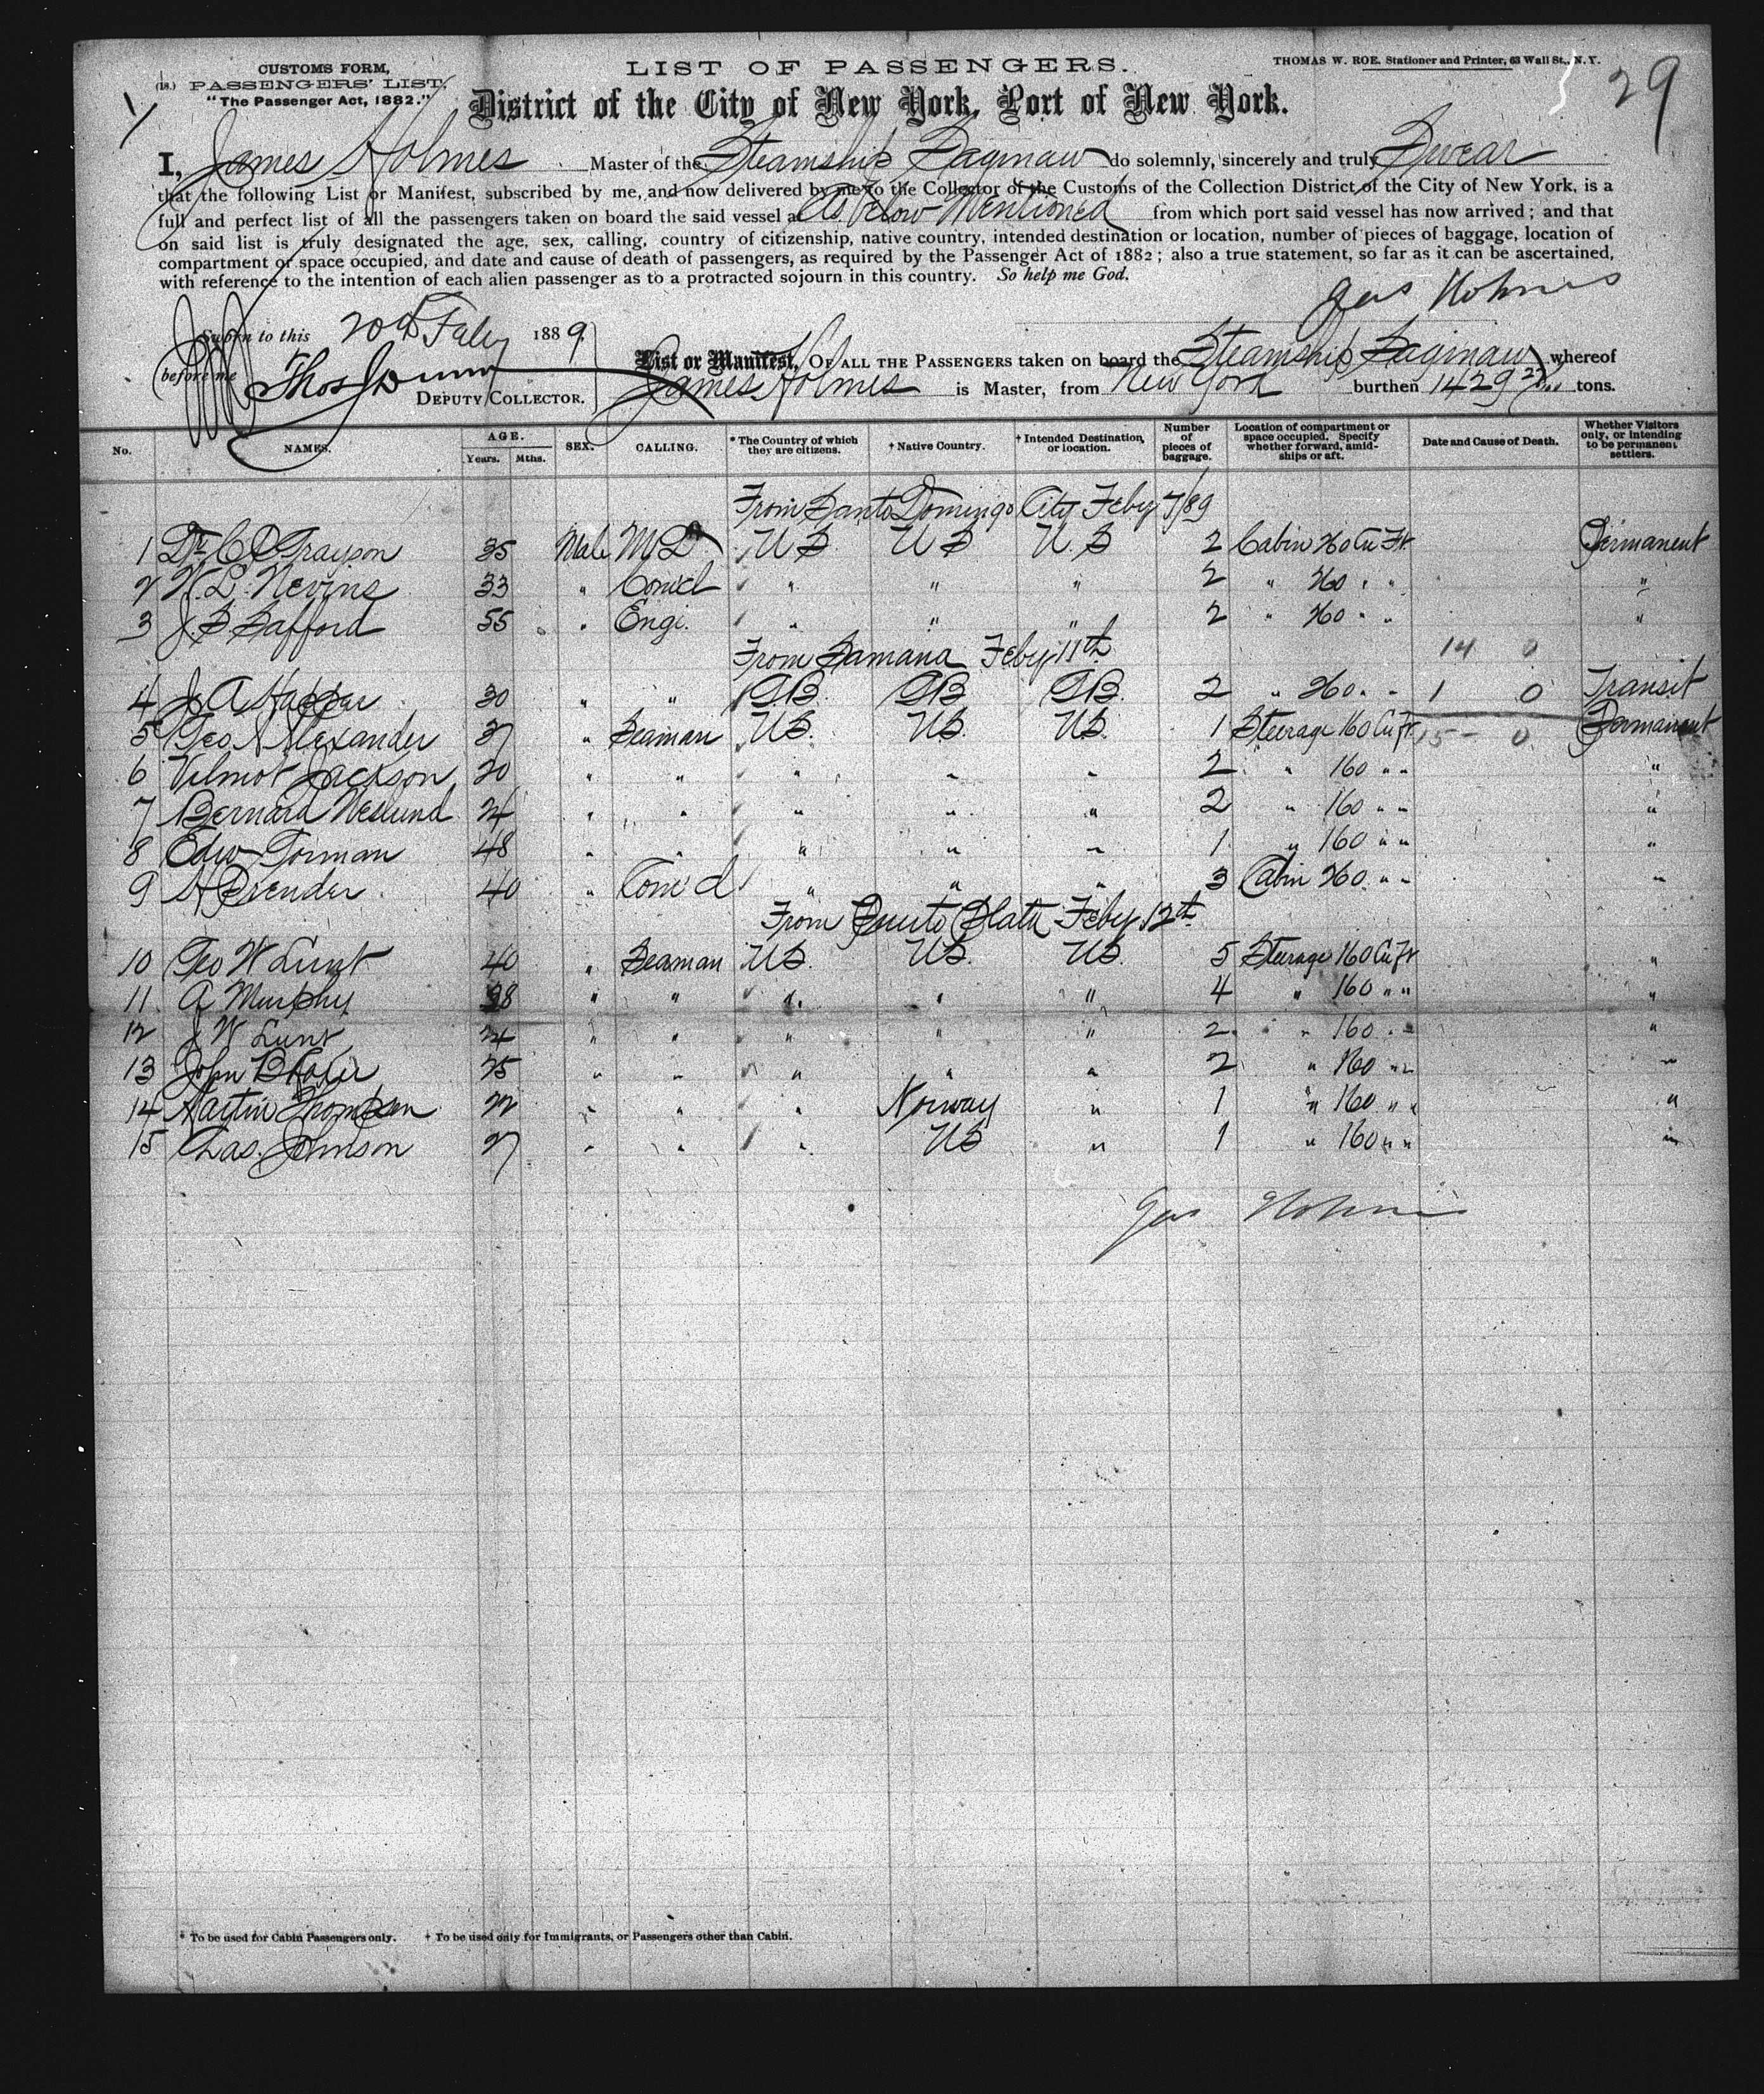 CUSTOMS FORM,
(18.) PASSENGERS' LIST.
"The Passenger Act, 1882."
LIST OF PASSENGERS.
THOMAS W. ROE, Stationer and Printer, 63 Wall St., N.Y.
29
District of the City of New York, Port of New York.
I, James Holmes Master of the Steamship Saginaw do solemnly, sincerely and truly Swear
that the following List or Manifest, subscribed by me, and now delivered by me to the Collector of the Customs of the Collection District of the City of New York, is a
full and perfect list of all the passengers taken on board the said vessel at As below Mentioned from which port said vessel has now arrived; and that
on said list is truly designated the age, sex, calling, country of citizenship, native country, intended destination or location, number of pieces of baggage, location of
compartment or space occupied, and date and cause of death of passengers, as required by the Passenger Act of 1882; also a true statement, so far as it can be ascertained,
with reference to the intention of each alien passenger as to a protracted sojourn in this country. So help me God.
Jas Holmes
Sworn to this 20th Feby 1889
before me Thos Dunn
DEPUTY COLLECTOR.
List or Manifest, OF ALL THE PASSENGERS taken on board the Steamship Saginaw whereof
James Holmes is Master, from New York burthen 1429 tons.
No. NAMES. AGE. Years. Mths. SEX. CALLING. * The Country of which they are citizens. † Native Country. † Intended Destination, or location. Number of pieces of baggage. Location of compartment or space occupied. Specify whether forward, amidships or aft. Date and Cause of Death. Whether Visitors only, or intending to be permanent settlers.
From Santo Domingo City Feby 7/89
1 Dr C P Grayson 35 Male MD US US U.S 2 Cabin 260 Cu Ft Permanent
2 W. L. Nevins 33 " Comcl " " " 2 " 260 " " "
3 J. S Safford 55 " Engi. " " " 2 " 260 " " "
From Samana Feby 11th
14 0
4 J A 30 " " GB. GB GB. 2 " 260 " " 1 0 Transit
5 Geo Alexander 37 " Seaman US. US. US. 1 Steerage 160 Cu ft 15 - 0 Permanent
6 Vilmot Jackson 20 " " " " " 2 " 160 " " "
7 Bernard 24 " " " " " 2 " 160 " " "
8 Edw 48 " " " " " 1 " 160 " " "
9 40 " Com'cl " " " 3 Cabin 260 " " "
From Puerto Plata Feby 12th
10 Geo W Lunt 40 " Seaman US. US. US. 5 Steerage 160 Cu ft "
11 A Murphy 38 " " " " " 4 " 160 " " "
12 J W Lunt 24 " " " " " 2 " 160 " " "
13 John 25 " " " " " 2 " 160 " " "
14 Martin Thompson 22 " " " Norway " 1 " 160 " " "
15 Chas. Johnson 27 " " " US " 1 " 160 " " "
Jas Holmes
* To be used for Cabin Passengers only. † To be used only for Immigrants, or Passengers other than Cabin.